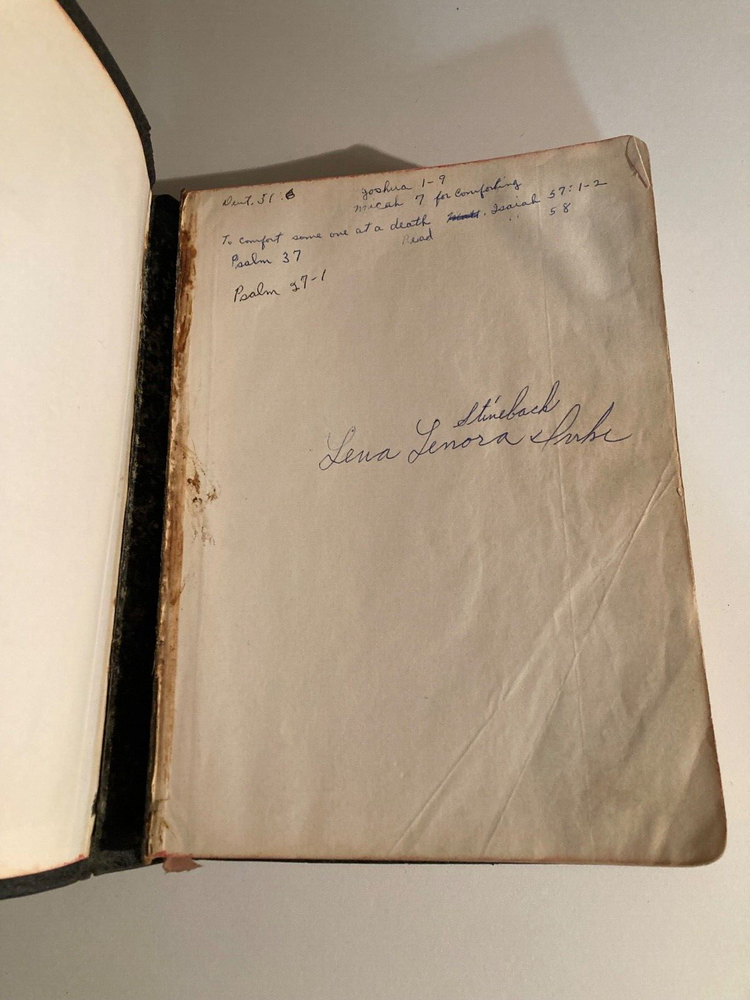 Deut. 31:6 Joshua 1-9
Micah 7 for comforting
To comfort some one at a death Isaiah 57:1-2
Read " 58
Psalm 37
Psalm 27-1
Stineback
Lena Lenora